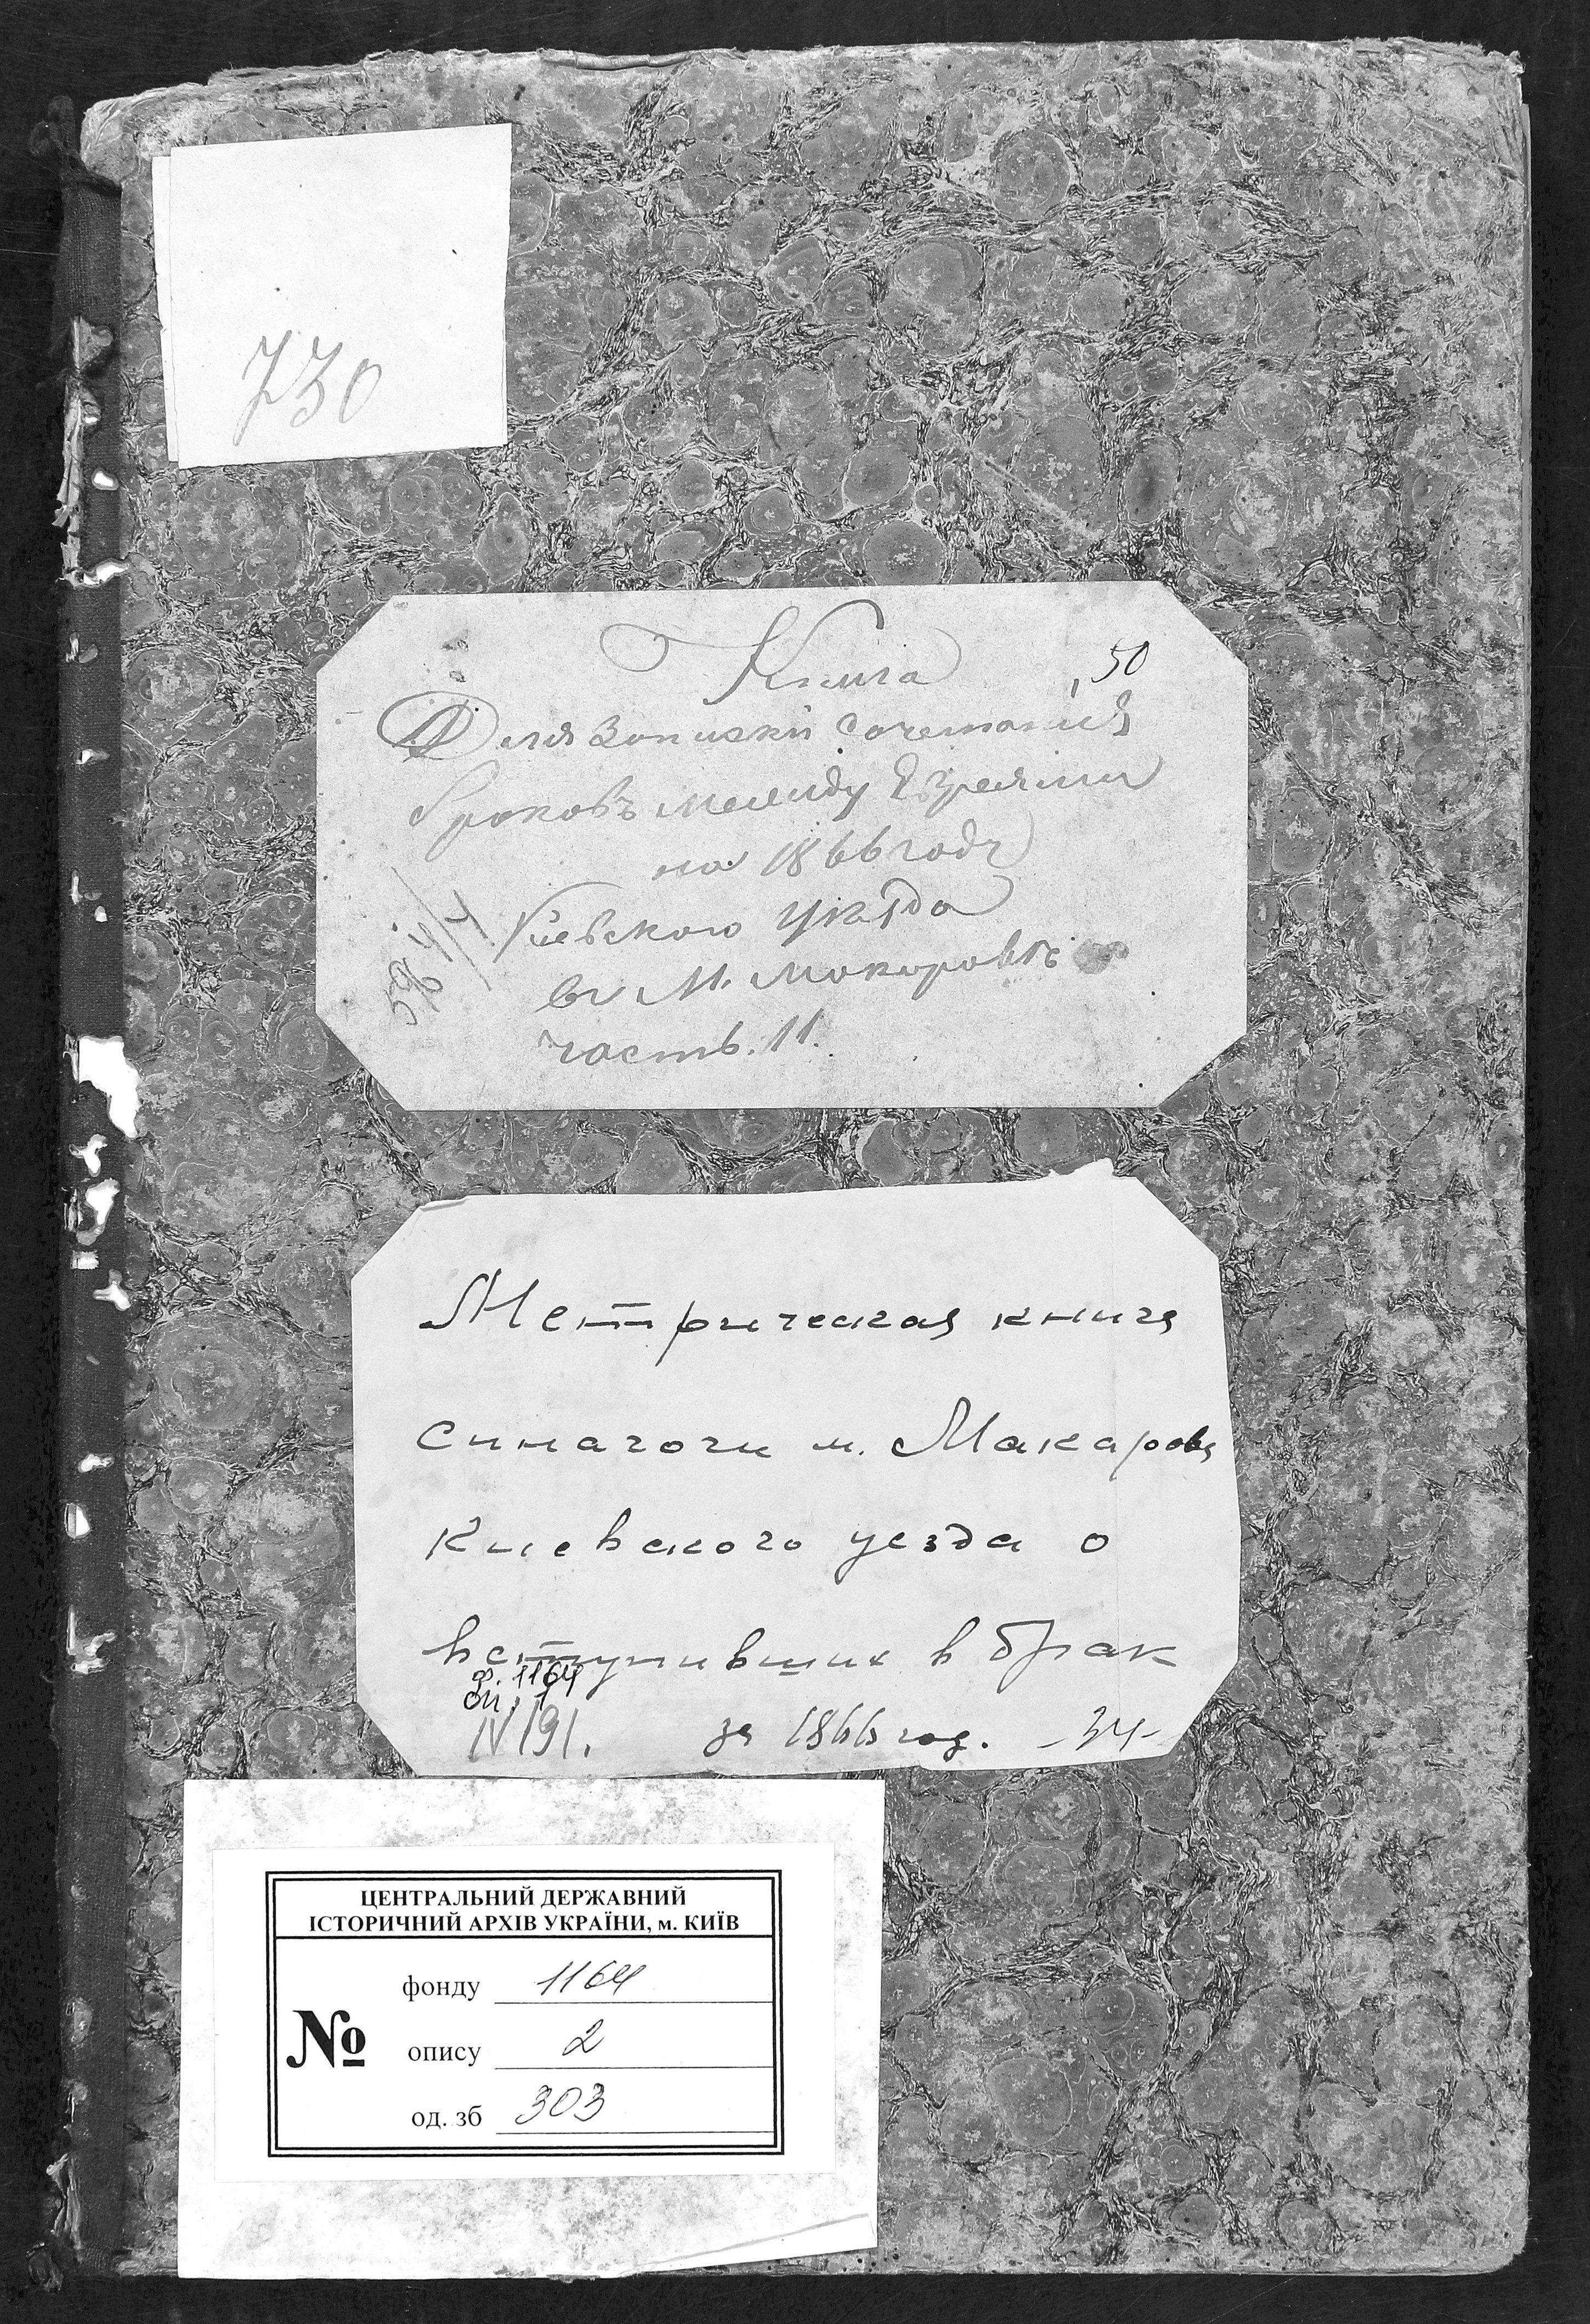 730
Книга
50
Для записки сочетанія
браковъ между Евреями
на 1866 годъ
Кіевского уѣзда
въ М. Макоровѣ
часть. 11.
Метрическая книга
синагоги м. Макарова
Киевского уезда о
вступивших в брак
ф. 1164
оп. 1
N 191.
за 1866 год. -34-
ЦЕНТРАЛЬНИЙ ДЕРЖАВНИЙ
ІСТОРИЧНИЙ АРХІВ УКРАЇНИ, м. КИЇВ
№
фонду 1164
опису 2
од. зб 303